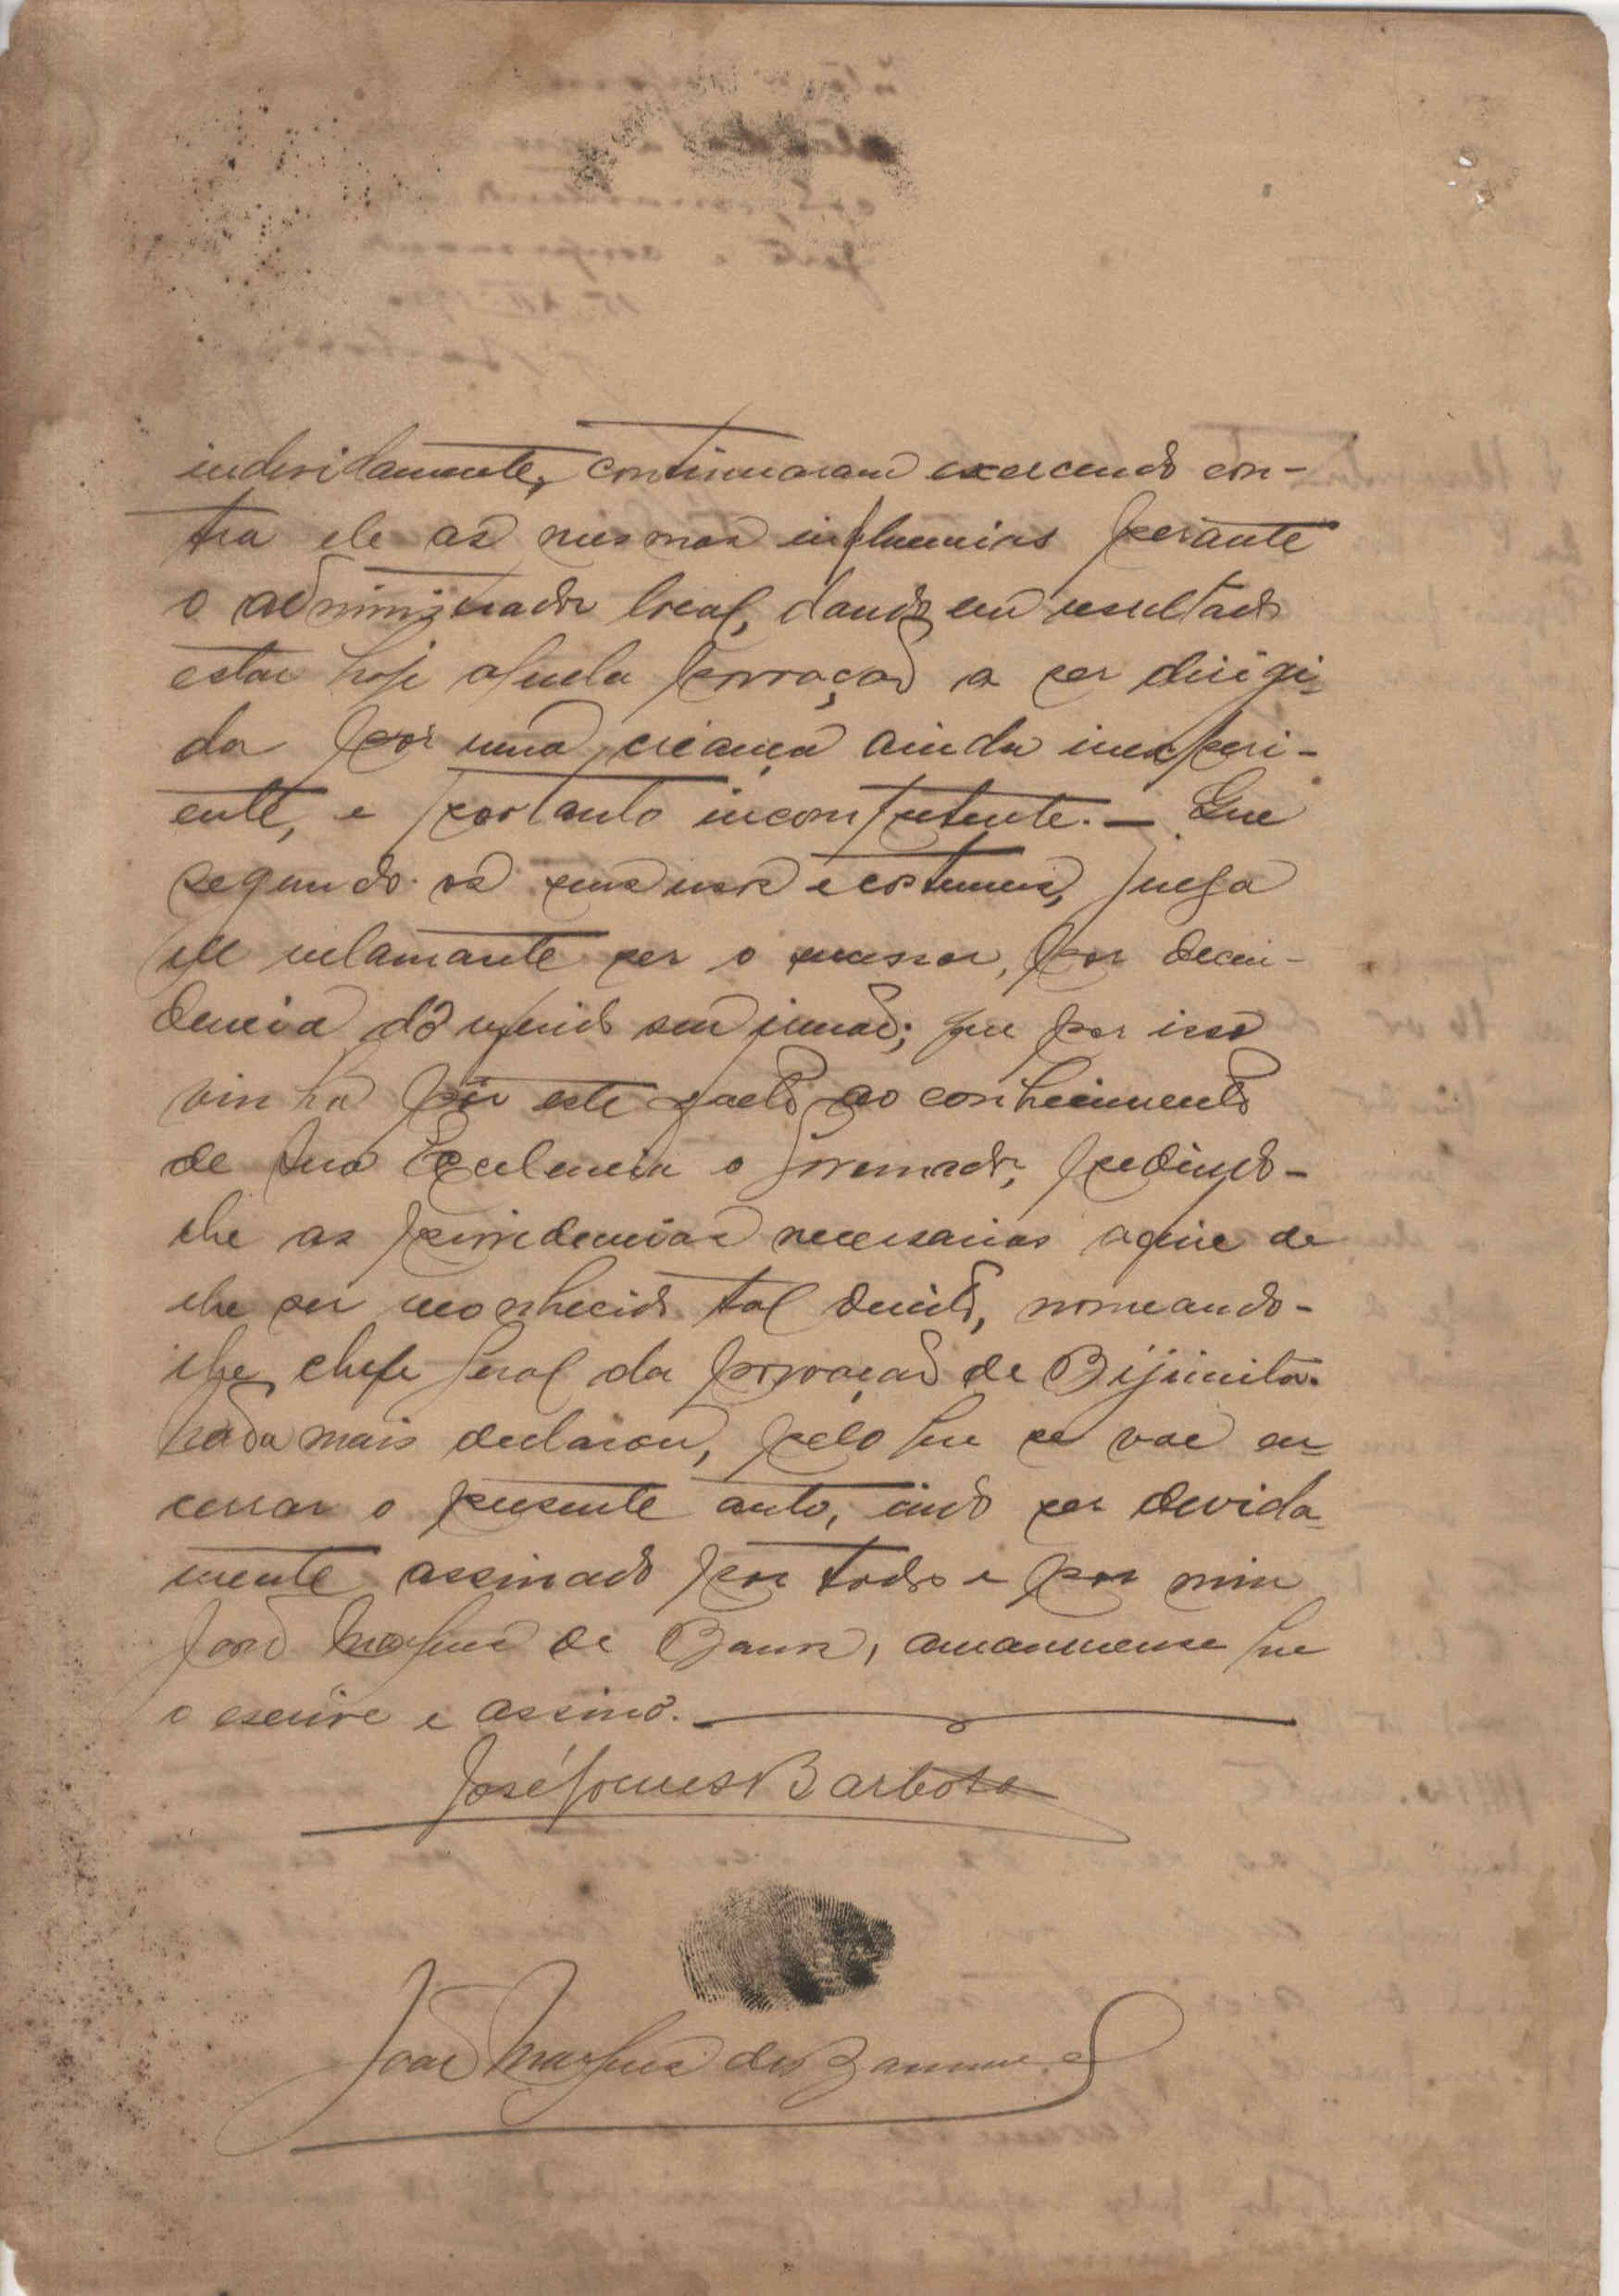 indevidamente, continuaram exercendo con-
tra ele as mesmas influencias perante
o administrador local, dando em resultado
estar hoje aquela povoação a ser dirigi-
da por uma criança ainda inexperi-
ente, e portanto incompetente. — Que
segundo os seus usos e costumes, julga
ele reclamante ser o sucessor, por decen-
dencia do referido seu irmão; que por isso
vinha por este facto ao conhecimento
de Sua Excelencia o Governador, pedindo-
lhe as providencias necessarias afim de
lhe ser reconhecido tal direito, nomeando-
lhe chefe geral da povoação de Bijimita.
Nada mais declarou, pelo que se vae en-
cerrar o presente auto, indo ser devida-
mente assinado por todos e por mim
João Marques de Barros, amanuense que
o escrevi e assino.
José Gomes Barbosa
João Marques de Barros